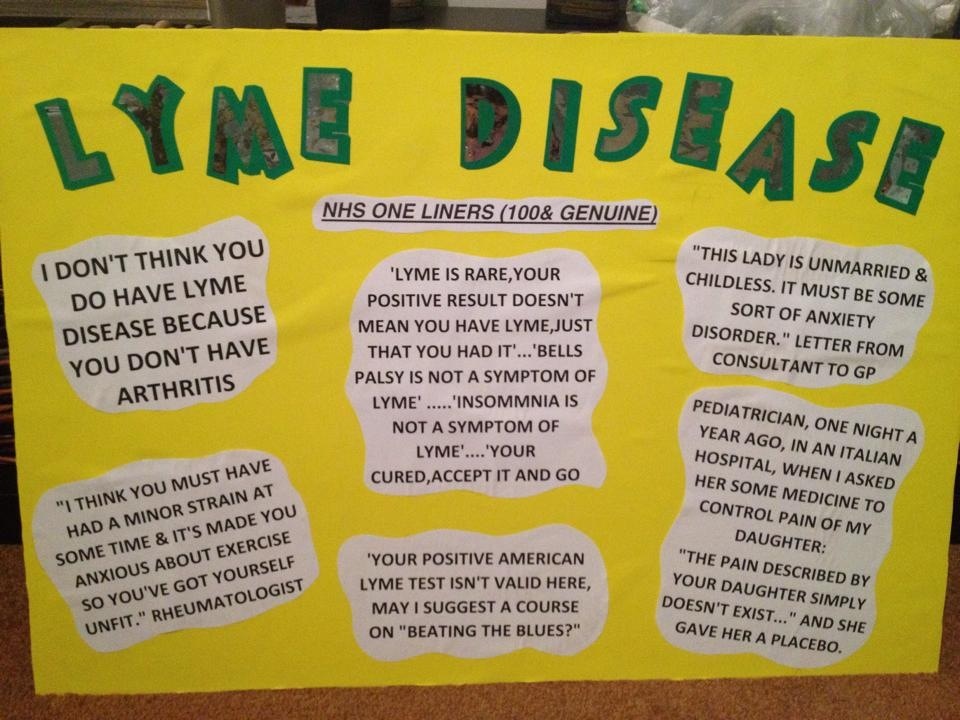 LYME DISEASE
NHS ONE LINERS (100& GENUINE)
I DON'T THINK YOU
DO HAVE LYME
DISEASE BECAUSE
YOU DON'T HAVE
ARTHRITIS
'LYME IS RARE,YOUR
POSITIVE RESULT DOESN'T
MEAN YOU HAVE LYME,JUST
THAT YOU HAD IT'...'BELLS
PALSY IS NOT A SYMPTOM OF
LYME' .....'INSOMMNIA IS
NOT A SYMPTOM OF
LYME'....'YOUR
CURED,ACCEPT IT AND GO
"THIS LADY IS UNMARRIED &
CHILDLESS. IT MUST BE SOME
SORT OF ANXIETY
DISORDER." LETTER FROM
CONSULTANT TO GP
"I THINK YOU MUST HAVE
HAD A MINOR STRAIN AT
SOME TIME & IT'S MADE YOU
ANXIOUS ABOUT EXERCISE
SO YOU'VE GOT YOURSELF
UNFIT." RHEUMATOLOGIST
'YOUR POSITIVE AMERICAN
LYME TEST ISN'T VALID HERE,
MAY I SUGGEST A COURSE
ON "BEATING THE BLUES?"
PEDIATRICIAN, ONE NIGHT A
YEAR AGO, IN AN ITALIAN
HOSPITAL, WHEN I ASKED
HER SOME MEDICINE TO
CONTROL PAIN OF MY
DAUGHTER:
"THE PAIN DESCRIBED BY
YOUR DAUGHTER SIMPLY
DOESN'T EXIST..." AND SHE
GAVE HER A PLACEBO.